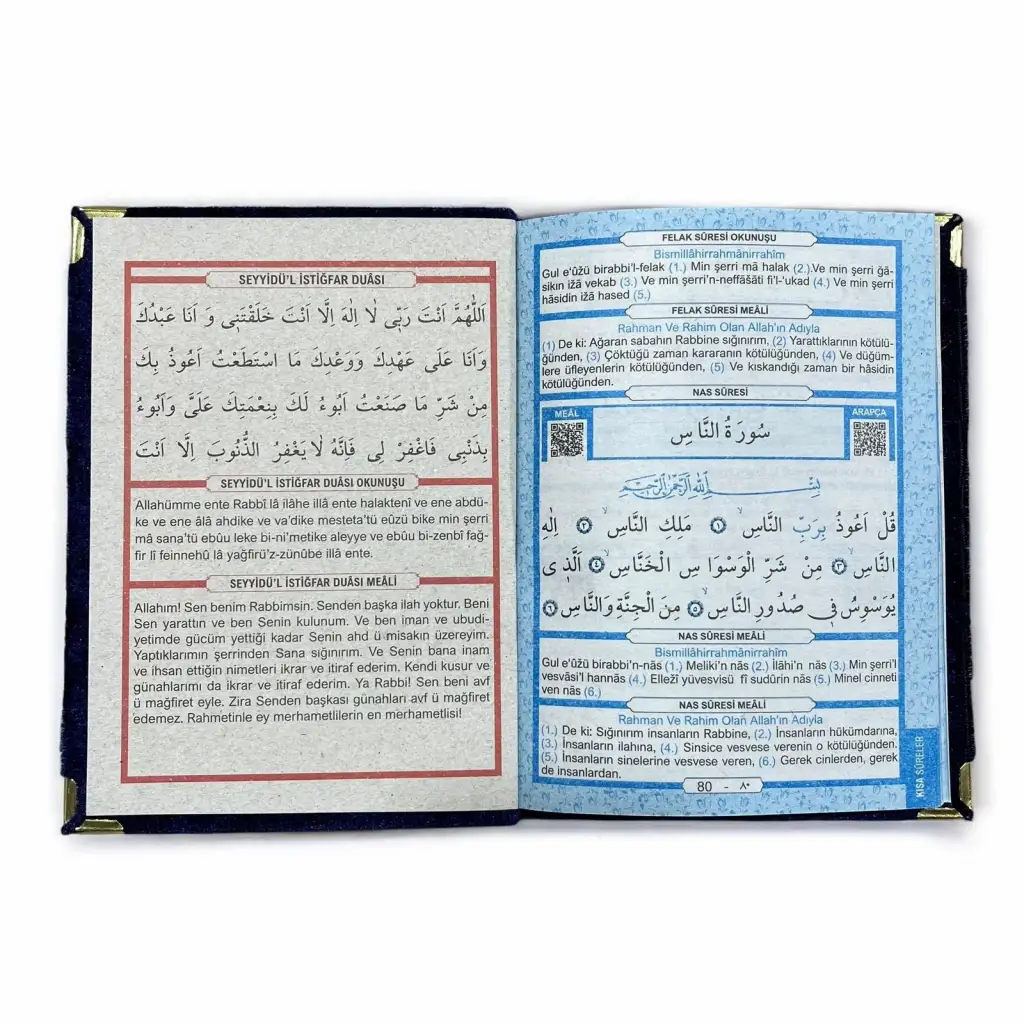 SEYYİDÜ'L İSTİĞFAR DUÂSI
اَللّٰهُمَّ اَنْتَ رَبّ۪ى لَا اِلٰهَ اِلَّا اَنْتَ خَلَقْتَن۪ى وَ اَنَا عَبْدُكَ
وَاَنَا عَلَى عَهْدِكَ وَوَعْدِكَ مَا اسْتَطَعْتُ اَعُوذُ بِكَ
مِنْ شَرِّ مَا صَنَعْتُ اَبُوءُ لَكَ بِنِعْمَتِكَ عَلَىَّ وَاَبُوءُ
بِذَنْب۪ى فَاغْفِرْ ل۪ى فَاِنَّهُ لَا يَغْفِرُ الذُّنُوبَ اِلَّا اَنْتَ
SEYYİDÜ'L İSTİĞFAR DUÂSI OKUNUŞU
Allahümme ente Rabbî lâ ilâhe illâ ente halaktenî ve ene abdü-
ke ve ene âlâ ahdike ve va'dike mesteta'tü eûzü bike min şerri
mâ sana'tü ebûu leke bi-ni'metike aleyye ve ebûu bi-zenbî fağ-
fir lî feinnehû lâ yağfirü'z-zünûbe illâ ente.
SEYYİDÜ'L İSTİĞFAR DUÂSI MEÂLİ
Allahım! Sen benim Rabbimsin. Senden başka ilah yoktur. Beni
Sen yarattın ve ben Senin kulunum. Ve ben iman ve ubudi-
yetimde gücüm yettiği kadar Senin ahd ü misakın üzereyim.
Yaptıklarımın şerrinden Sana sığınırım. Ve Senin bana inam
ve ihsan ettiğin nimetleri ikrar ve itiraf ederim. Kendi kusur ve
günahlarımı da ikrar ve itiraf ederim. Ya Rabbi! Sen beni avf
ü mağfiret eyle. Zira Senden başkası günahları avf ü mağfiret
edemez. Rahmetinle ey merhametlilerin en merhametlisi!
FELAK SÛRESİ OKUNUŞU
Bismillâhirrahmânirrahîm
Gul e'ûžü birabbi'l-felak (1.) Min şerri mâ halak (2.).Ve min şerri ğâ-
sikın ižâ vekab (3.) Ve min şerri'n-neffâšâti fi'l-'ukad (4.) Ve min şerri
hâsidin ižâ hased (5.)
FELAK SÛRESİ MEÂLİ
Rahman Ve Rahim Olan Allah'ın Adıyla
(1) De ki: Ağaran sabahın Rabbine sığınırım, (2) Yarattıklarının kötülü-
ğünden, (3) Çöktüğü zaman kararanın kötülüğünden, (4) Ve düğüm-
lere üfleyenlerin kötülüğünden, (5) Ve kıskandığı zaman bir hâsidin
kötülüğünden.
NAS SÛRESİ
MEÂL
سُورَةُ النَّاسِ
ARAPÇA
بِسْــــمِ اللّٰهِ الرَّحْمٰنِ الرَّح۪يمِ
قُلْ اَعُوذُ بِرَبِّ النَّاسِۙ ﴿١﴾ مَلِكِ النَّاسِۙ ﴿٢﴾ اِلٰهِ
النَّاسِۙ ﴿٣﴾ مِنْ شَرِّ الْوَسْوَاسِ الْخَنَّاسِۙ ﴿٤﴾ اَلَّذ۪ى
يُوَسْوِسُ ف۪ى صُدُورِ النَّاسِۙ ﴿٥﴾ مِنَ الْجِنَّةِ وَالنَّاسِ ﴿٦﴾
NAS SÛRESİ MEÂLİ
Bismillâhirrahmânirrahîm
Gul e'ûžü birabbi'n-nâs (1.) Meliki'n nâs (2.) İlâhi'n nâs (3.) Min şerri'l
vesvâsi'l hannâs (4.) Ellezî yüvesvisü fî sudûrin nâs (5.) Minel cinneti
ven nâs (6.)
NAS SÛRESİ MEÂLİ
Rahman Ve Rahim Olan Allah'ın Adıyla
(1.) De ki: Sığınırım insanların Rabbine, (2.) İnsanların hükümdarına,
(3.) İnsanların ilahına, (4.) Sinsice vesvese verenin o kötülüğünden.
(5.) İnsanların sinelerine vesvese veren, (6.) Gerek cinlerden, gerek
de insanlardan.
80 - ٨٠
KISA SÛRELER